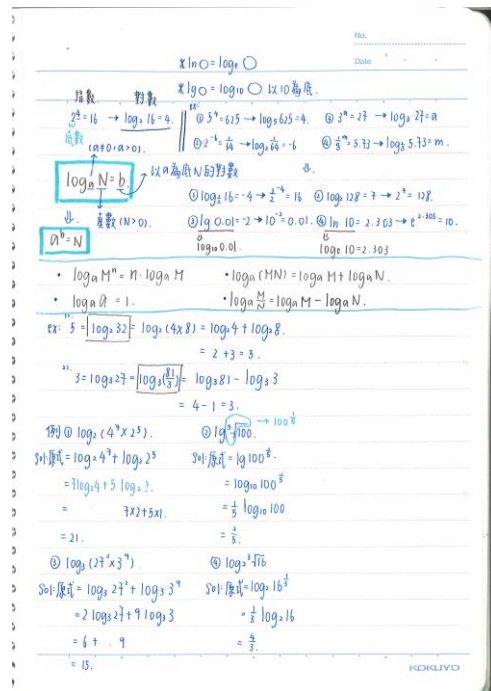 No.
Date
*ln○=logₑ○
*lg○=log₁₀○ 以10為底.
指數 對數
2⁴=16 → log₂16=4.
底數
(a≠0, a>0).
ex:
① 5⁴=625 → log₅625=4. ③ 3ᵃ=27 → log₃27=a
② 2⁻⁶=1/64 → log₂1/64=-6 ④ 1/3ᵐ=5.73 → log1/3 5.73=m.
logₐN=b. 以a為底N的對數
⇓. 真數(N>0).
aᵇ=N
⇓.
① log1/2 16=-4 → 1/2⁻⁴=16 ② log₂128=7 → 2⁷=128.
③ lg 0.01=-2 → 10⁻²=0.01. ④ ln 10=2.303 → e²·³⁰³=10.
log₁₀0.01. logₑ10=2.303
• logₐMⁿ=n·logₐM • logₐ(MN)=logₐM+logₐN.
• logₐa=1. • logₐM/N=logₐM-logₐN.
ex: 1). 5=log₂32=log₂(4×8)=log₂4+log₂8.
=2+3=5.
2). 3=log₃27=log₃(81/3)=log₃81-log₃3
=4-1=3.
例) ① log₂(4⁷×2⁵). ② lg⁵√100. → 100^1/5
Sol:原式=log₂4⁷+log₂2⁵ Sol:原式=lg100^1/5.
=7log₂4+5log₂2. =log₁₀100^1/5
= 7×2+5×1. =1/5 log₁₀100
=21. =2/5.
③ log₃(27²×3⁹) ④ log₂³√16
Sol:原式=log₃27²+log₃3⁹ Sol:原式=log₂16^1/3
=2log₃27+9log₃3 =1/3 log₂16
=6+.9 =4/3.
=15.
KOKUYO